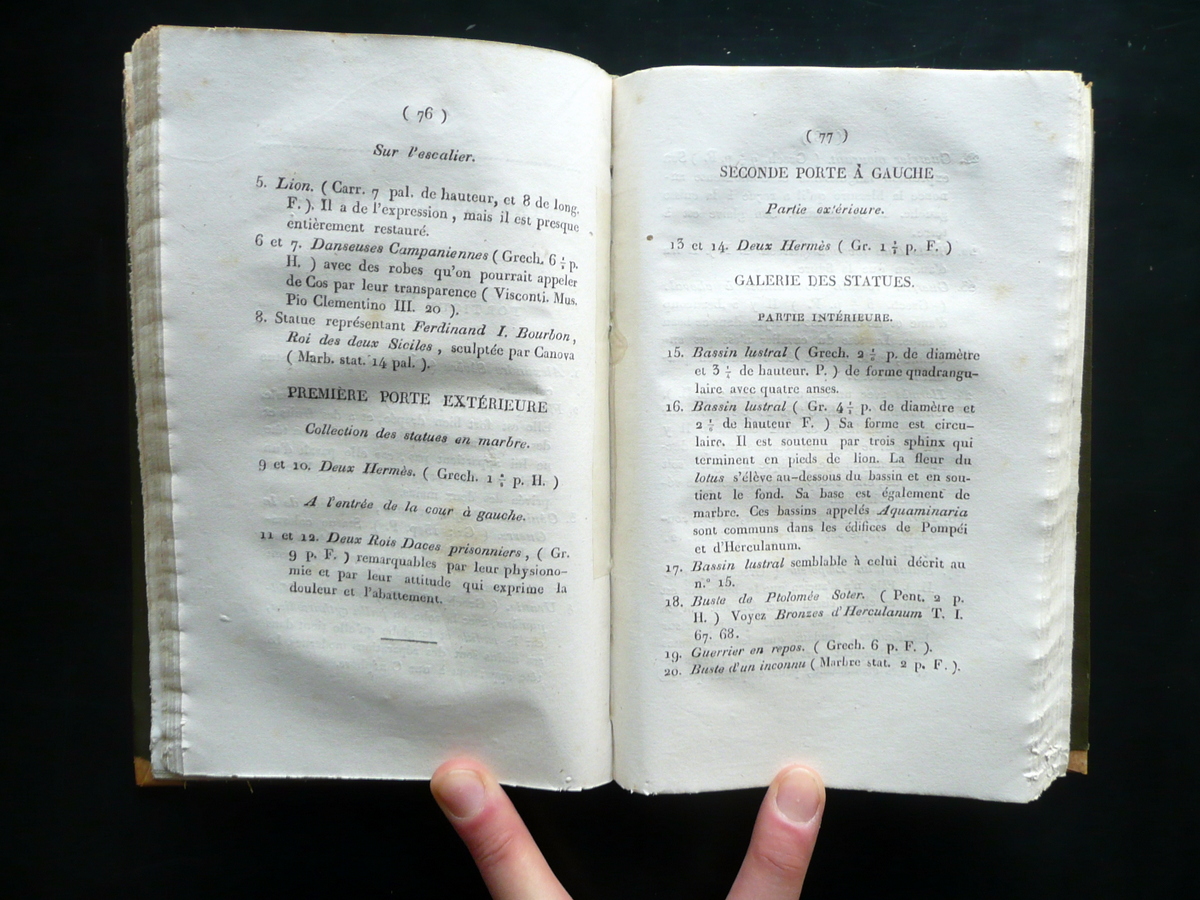 ( 76 )
Sur l'escalier.
5. Lion. ( Carr. 7 pal. de hauteur, et 8 de long.
F. ). Il a de l'expression , mais il est presque
entièrement restauré.
6 et 7. Danseuses Campaniennes ( Grech. 6 p.
H. ) avec des robes qu'on pourrait appeler
de Cos par leur transparence ( Visconti. Mus.
Pio Clementino III. 20 ).
8. Statue représentant Ferdinand I. Bourbon,
Roi des deux Siciles , sculptée par Canova
( Marb. stat. 14 pal. ).
PREMIÈRE PORTE EXTÉRIEURE
Collection des statues en marbre.
9 et 10. Deux Hermès. ( Grech. 1 p. H. )
A l'entrée de la cour à gauche.
11 et 12. Deux Rois Daces prisonniers , ( Gr.
9 p. F. ) remarquables par leur physiono-
mie et par leur attitude qui exprime la
douleur et l'abattement.
( 77 )
SECONDE PORTE À GAUCHE
Partie extérieure.
13 et 14. Deux Hermès ( Gr. 1 p. F. )
GALERIE DES STATUES.
PARTIE INTÉRIEURE.
15. Bassin lustral ( Grech. 2 p. de diamètre
et 3 de hauteur. P. ) de forme quadrangu-
laire avec quatre anses.
16. Bassin lustral ( Gr. 4 p. de diamètre et
2 de hauteur F. ) Sa forme est circu-
laire. Il est soutenu par trois sphinx qui
terminent en pieds de lion. La fleur du
lotus s'élève au-dessous du bassin et en sou-
tient le fond. Sa base est également de
marbre. Ces bassins appelés Aquaminaria
sont communs dans les édifices de Pompéi
et d'Herculanum.
17. Bassin lustral semblable à celui décrit au
n.° 15.
18. Buste de Ptolomée Soter. ( Pent. 2 p.
H. ) Voyez Bronzes d'Herculanum T. I.
67. 68.
19. Guerrier en repos. ( Grech. 6 p. F. ).
20. Buste d'un inconnu ( Marbre stat. 2 p. F. ).